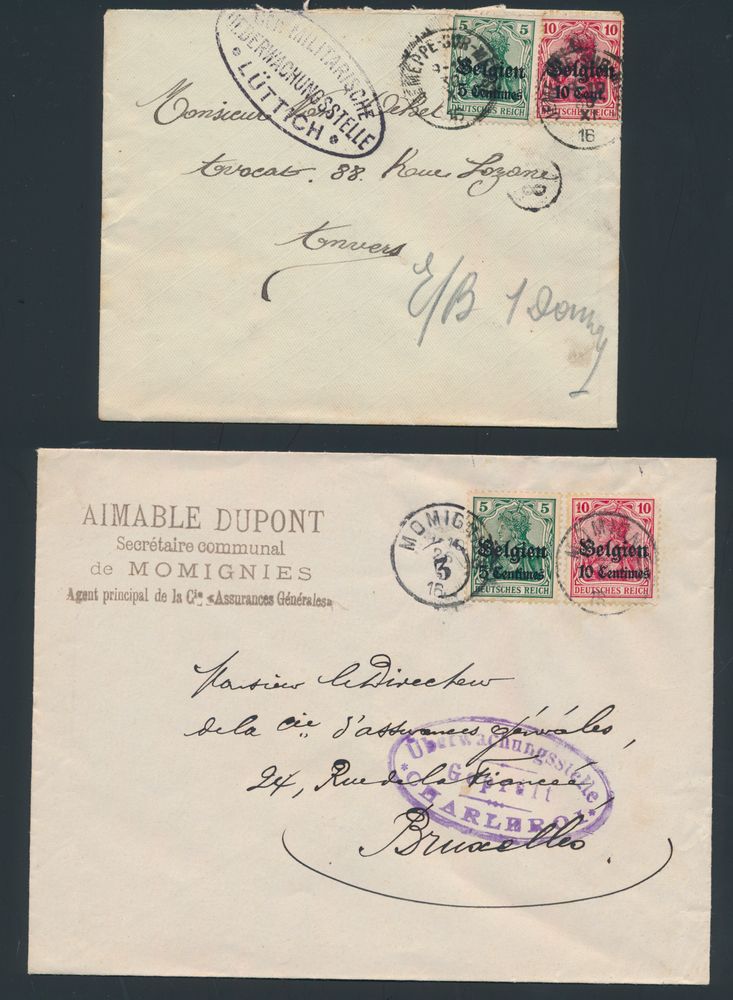 MILITÄRISCHE
ÜBERWACHUNGSSTELLE
* LÜTTICH *
5 5
Belgien
5 Centimes
DEUTSCHES REICH
10 10
Belgien
10 Cent.
DEUTSCHES REICH
16
16
Monsieur
Avocat. 88. Rue Lozane
Anvers
E/B 1
AIMABLE DUPONT
Secrétaire communal
de MOMIGNIES
Agent principal de la Cie «Assurances Générales»
MOMIGN
3
16
5 5
Belgien
5 Centimes
DEUTSCHES REICH
10 10
Belgien
10 Centimes
DEUTSCHES REICH
Monsieur le Directeur
de la cie d'assurances générales,
24, Rue de la Fiancée,
Bruxelles
Überwachungsstelle
Geprüft
* CHARLEROI *